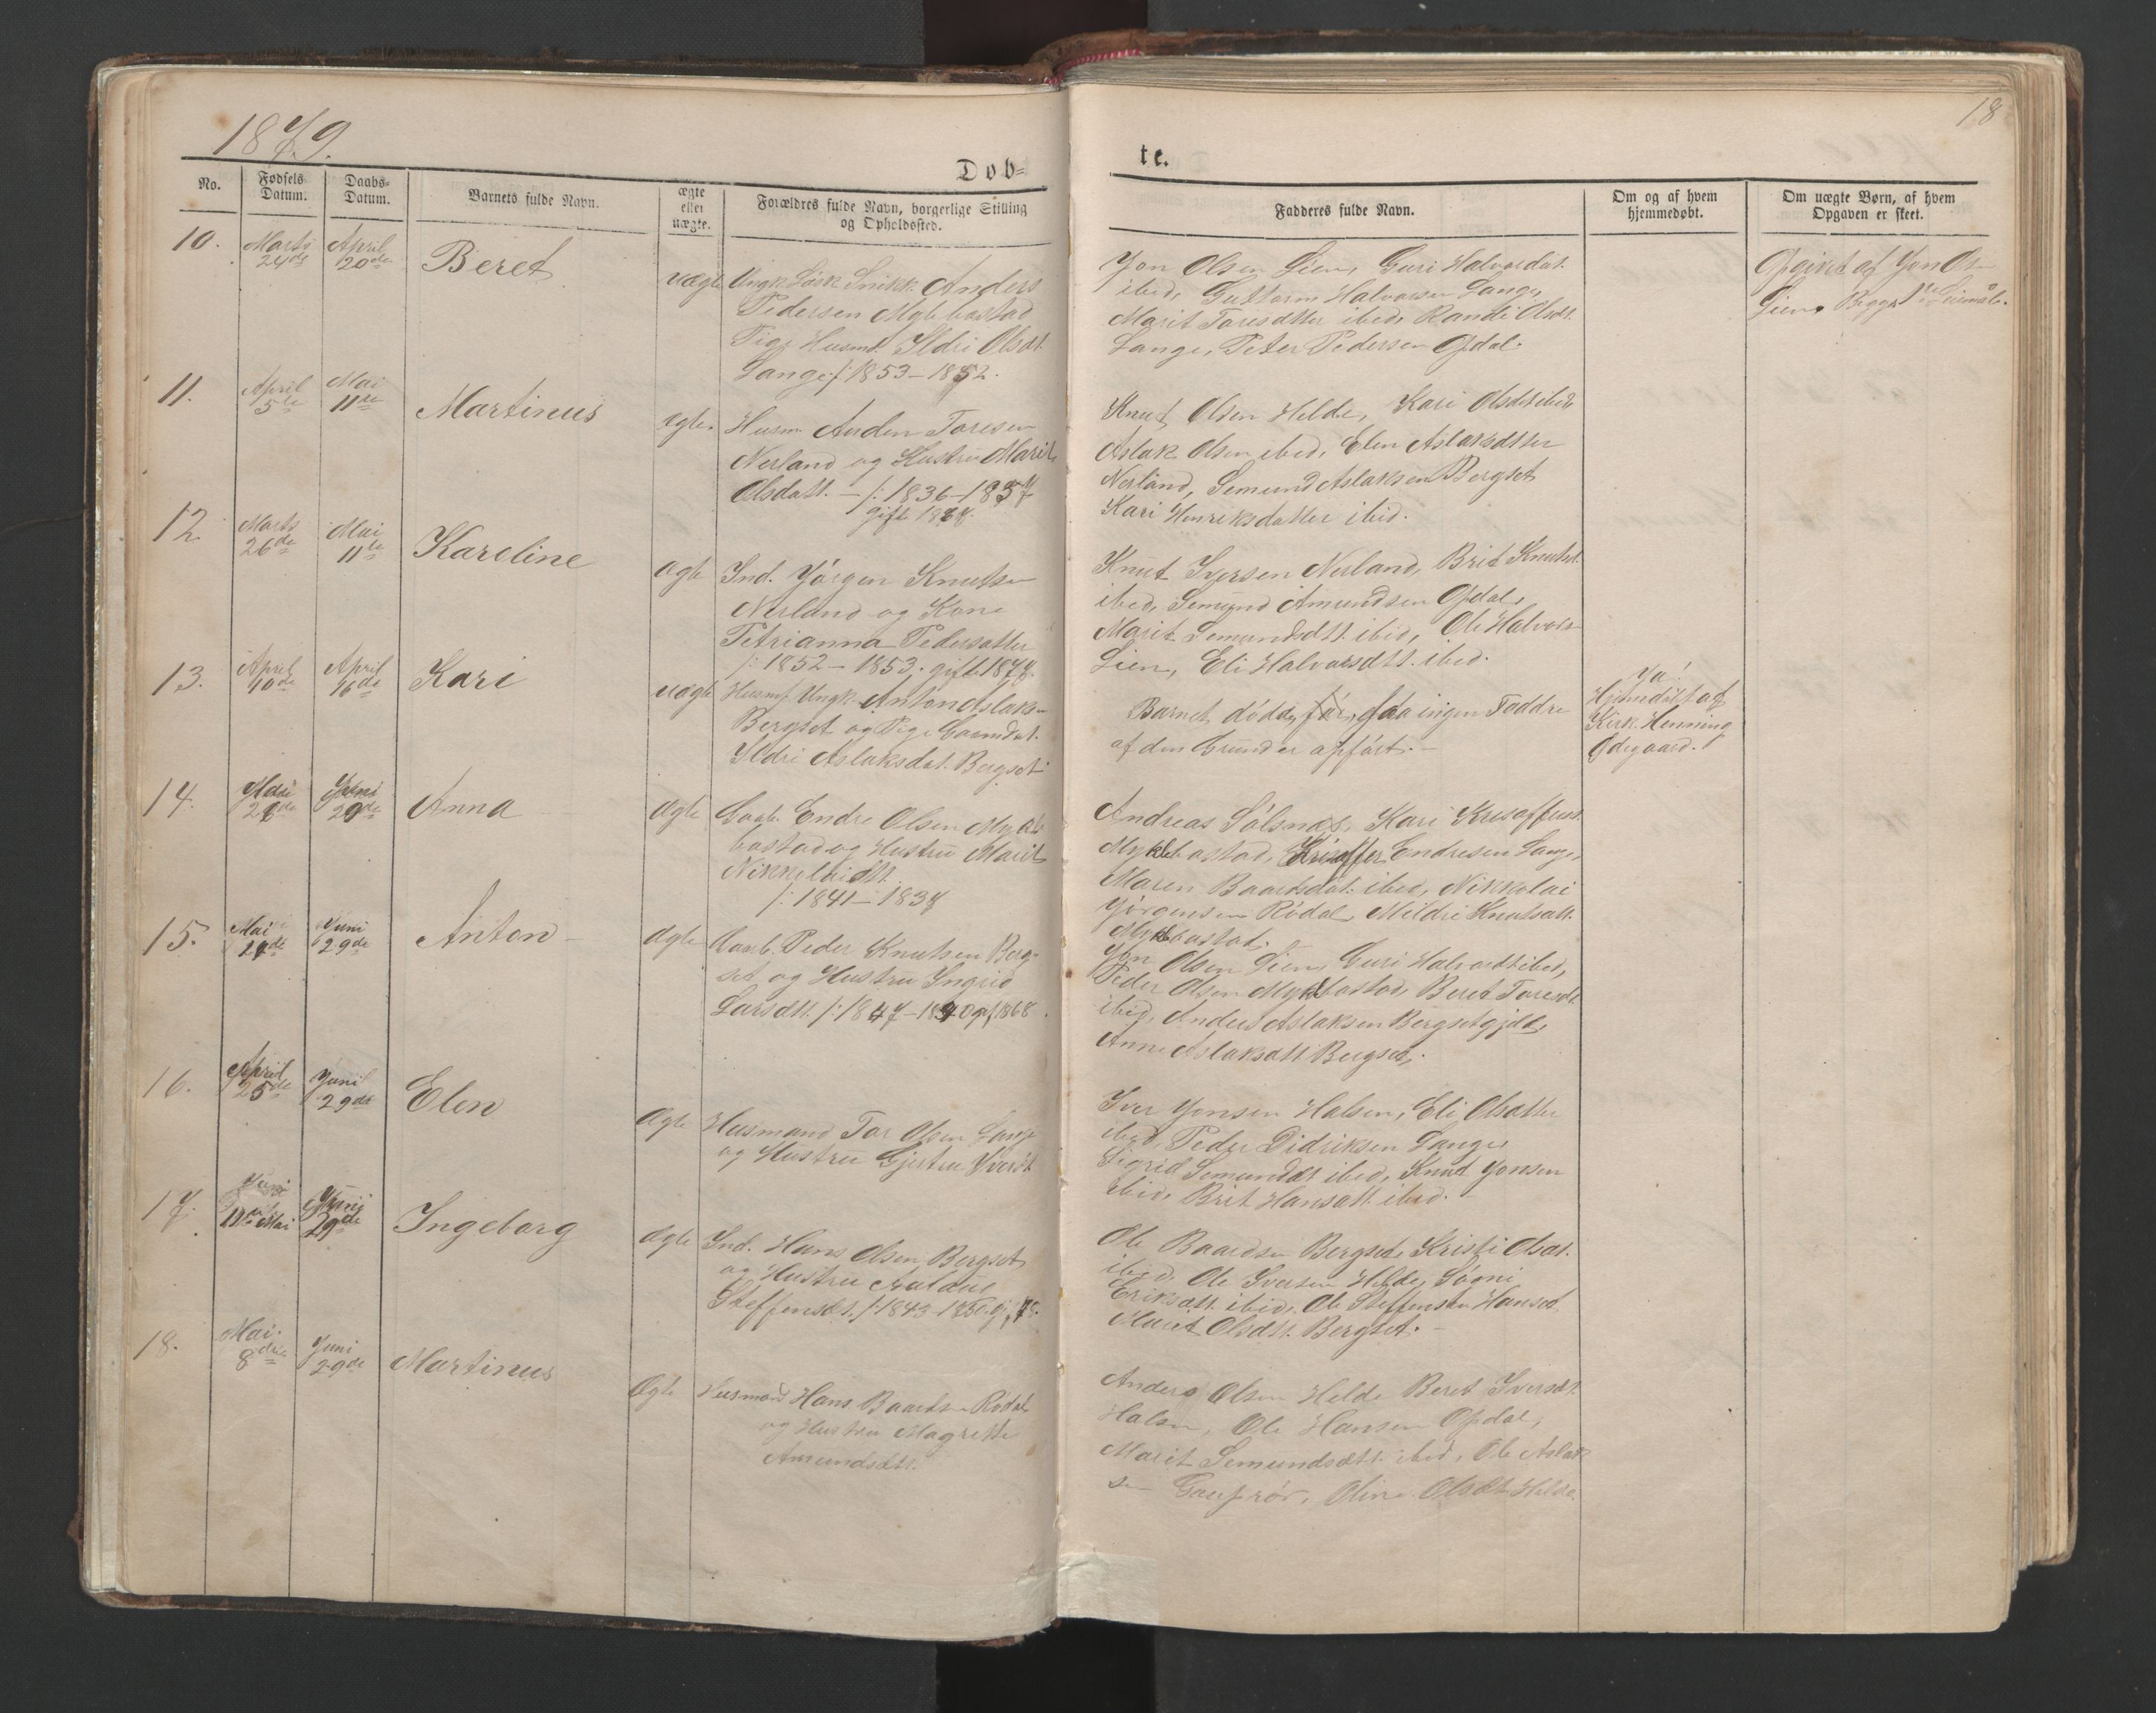 1879.
18
Dob=
te.
No.
Fødsels Datum.
Daabs= Datum.
Barnets fulde Navn.
ægte eller uægte.
Forældres fulde Navn, borgerlige Stilling
og Opholdssted.
Fadderes fulde Navn.
Om og af hvem
hjemmedøbt.
Om uægte Børn, af hvem
Opgaven er skeet.
10.
Marts 24de
April 20de
Beret
uægte
Ungk. Løsk. Snikk. Anders
Pedersen Myklebostad
Pige Husmd. Ildri Olsdt.
Lange /: 1853 – 1852.
Jon Olsen Lien, Guri Halvorsdt.
ibid, Guttorm Halvorsen Lange,
Marit Toresdtter ibid, Randi Olsdt.
Lange, Peter Pedersen Opdal.
Opgivet af Jon Ols-
Lien, Begges 1ste Leiermaal.
11.
April 5te
Mai 11te
Martinus
ægte
Husm. Anden Toresen
Nerland og Hustru Marit
Olsdatt. – /: 1836 – 1837
gift
Knut Olsen Helde, Kari Olsdt ibid,
Aslak Olsen ibid, Elen Aslaksdtter
Nerland, Semund Aslaksen Bergset
Kari Henriksdatter ibid.
12.
Marts 26de
Mai 11te
Karoline
ægte
Ind. Jørgen Knutsen
Nerland og Kone
Petrianna Pedersdatter
/: 1852 – 1853. gift 1878.
Knut Iversen Nerland, Brit Knutsdt.
ibid, Semund Amundsen Opdal,
Marit Semundsdtt. ibid, Ole Halvors-
Lien, Eli Halvorsdtt. ibid.
13.
April 10de
April 16de
Kari
uægte
Husmf. Ungk. Anton Aslaks-
Bergset og Pige Gaarmdat.
Ildri Aslaksdat. Bergset
Barnet døde, faa ingen Faddre
af den Grund er opført. –
Ja!
Hjemedøbt af
Kirk. Henning
Ødegaard.
14.
Mai
Juni 29de
Anna
ægte
Gaarb. Endre Olsen Mykle-
bostad og Hustru Marit
Nikkolaidtt.
/: 1841 – 1838
Andreas Sølsnæs, Kari Kristoffersdt.
Myklebostad, Kristoffer Endresen Lange,
Maren Baardsdat. ibid, Nikkolai
Jørgensen Rødal, Mildri Knutsdtt.
Myklebostad.
15.
Mai
Juni 29de
Anton
ægte
Gaarb. Peder Knutsen Berg-
set og Hustru Ingrid
Larsdtt. /: 1847 – 1840 gf. 1868.
Jon Olsen Lien, Guri Halvorsdt ibid,
Peder Olsen Myklebostad, Beret Toresdt.
ibid, Anders Aslaksen Bergsetgjelde,
Anne Aslaksdtt Bergset.
16.
April 25de
Juni 29de
Elen
ægte
Husmand Tor Olsen Lange
og Hustru Gjertru Iversdt
Iver Jonsen Halsen, Eli Olsdtter
ibid, Peder Didriksen Lange,
Sigrid Semundsdt ibid, Knud Jonsen
ibid, Brit Hansdtt. ibid.
17.
Mai
Juni 29de
Ingeborg
ægte
Ind. Hans Olsen Bergset
og Hustru
Steffensdt. /: 1843 – 1850. gf. 78.
Ole Baardsen Bergset, Kristi Olsdt.
ibid, Ole Iversen Helde, Søgni
Eriksdtt. ibid, Ole Steffensen Hanset
Marit Olsdtt. Bergset. –
18.
Mai. 8de
Juni 29de
Martinus
Ægte
Husmand Hans Baardsen Rødal
og Hustru Magrette
Amundsdtt.
Anders Olsen Helde Beret Iversdt.
Halsen, Ole Hansen Opdal,
Marit Semundsdtt. ibid, Ole Aslak
sen Gausrør, Oline Olsdt Helde.